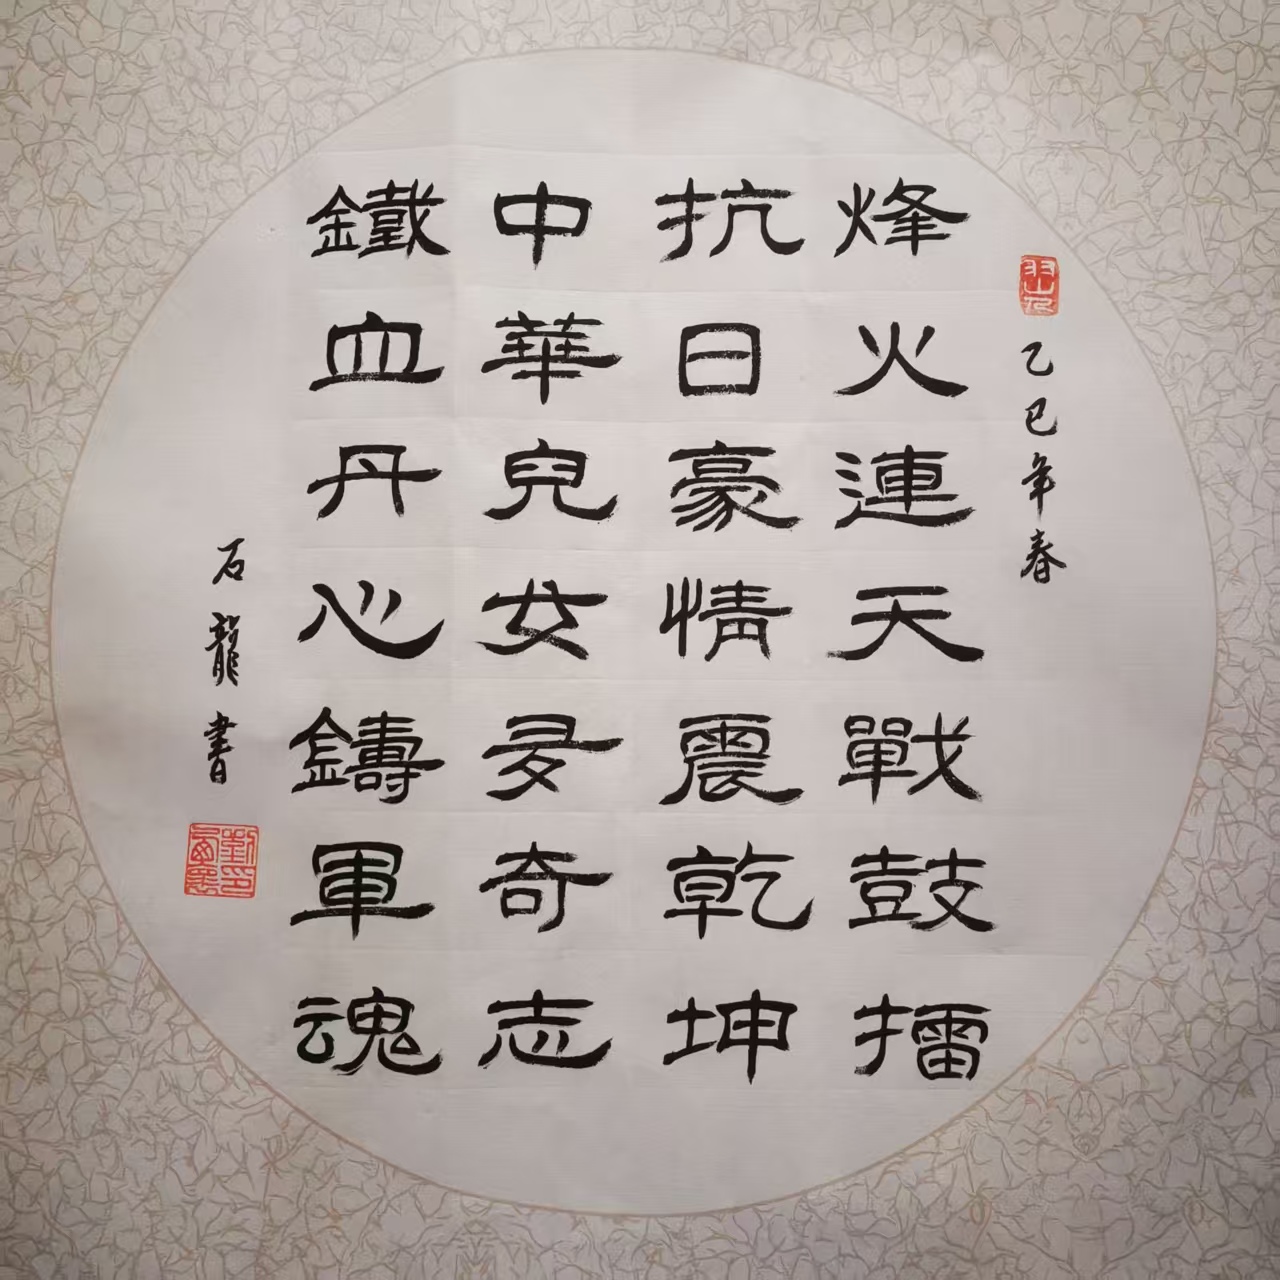 烽火連天戰鼓擂
抗日豪情震乾坤
中華兒女多奇志
鐵血丹心鑄軍魂
乙巳年春
石龍書